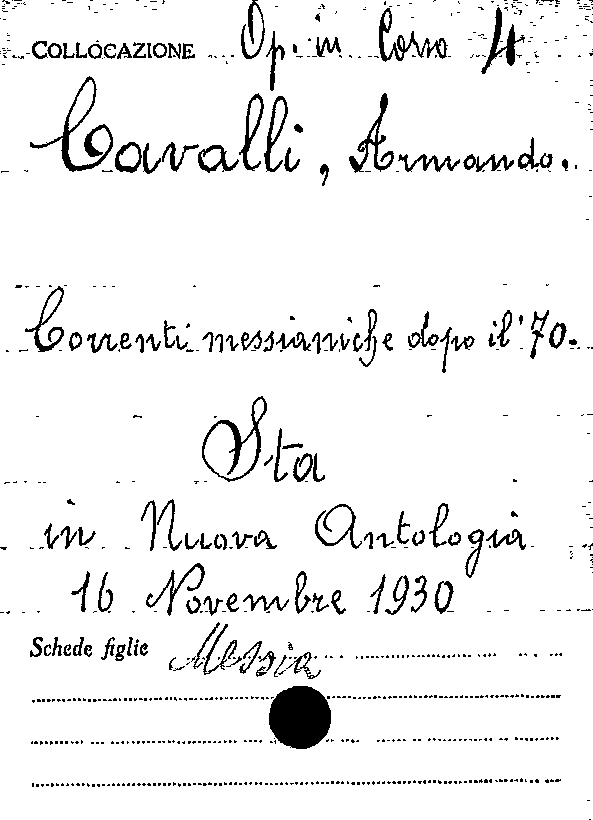 COLLOCAZIONE Op. in Corso 4
Cavalli, Armando.
Correnti messianiche dopo il '70.
Sta
in Nuova Antologia
16 Novembre 1930
Schede figlie Messia